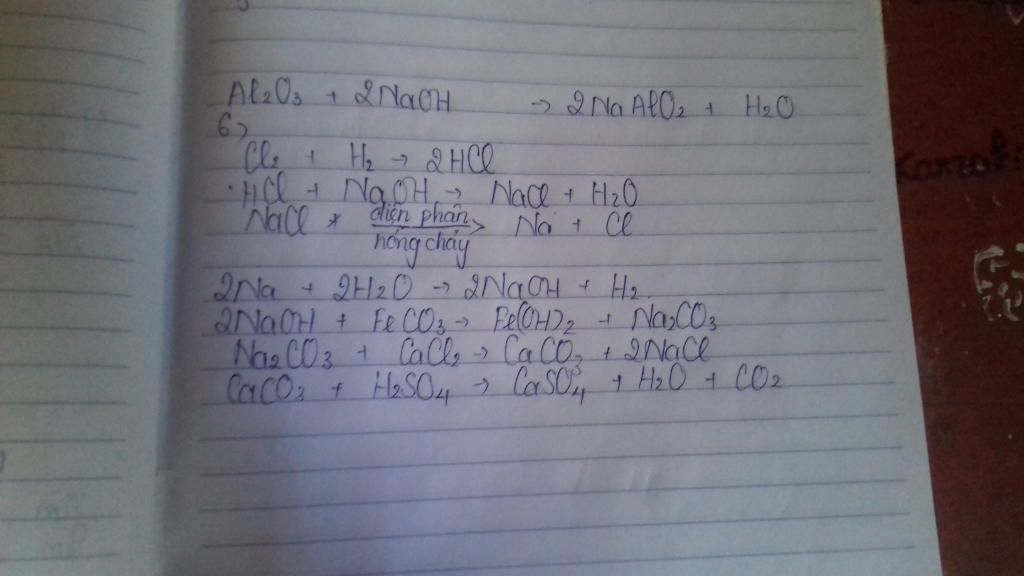 Al2O3 + 2NaOH → 2NaAlO2 + H2O
6>
Cl2 + H2 → 2HCl
HCl + NaOH → NaCl + H2O
NaCl điện phân nóng chảy → Na + Cl
2Na + 2H2O → 2NaOH + H2
2NaOH + FeCO3 → Fe(OH)2 + Na2CO3
Na2CO3 + CaCl2 → CaCO3 + 2NaCl
CaCO3 + H2SO4 → CaSO4 + H2O + CO2